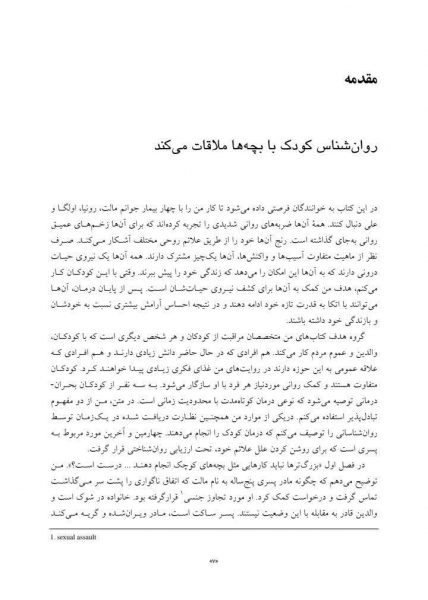 مقدمه
روان‌شناس کودک با بچه‌ها ملاقات می‌کند
در این کتاب به خوانندگان فرصتی داده می‌شود تا کار من را با چهار بیمار جوانم مالت، رونیا، اولگا و
علی دنبال کنند. همهٔ آن‌ها ضربه‌های روانی شدیدی را تجربه کرده‌اند که برای آن‌ها زخم‌های عمیق
روانی به‌جای گذاشته است. رنج آن‌ها خود را از طریق علائم روحی مختلف آشکار می‌کنند. صرف
نظر از ماهیت متفاوت آسیب‌ها و واکنش‌ها، آن‌ها یک‌چیز مشترک دارند. همه آن‌ها یک نیروی حیات
درونی دارند که به آن‌ها این امکان را می‌دهد که زندگی خود را پیش ببرند. وقتی با این کودکان کار
می‌کنم، هدف من کمک به آن‌ها برای کشف نیروی حیات‌شان است. پس از پایان درمان، آن‌ها
می‌توانند با اتکا به قدرت تازه خود ادامه دهند و در نتیجه احساس آرامش بیشتری نسبت به خودشان
و بازندگی خود داشته باشند.
گروه هدف کتاب‌های من متخصصان مراقبت از کودکان و هر شخص دیگری است که با کودکان،
والدین و عموم مردم کار می‌کند. هم افرادی که در حال حاضر دانش زیادی دارند و هم افرادی که
علاقه عمومی به این حوزه دارند در روایت‌های من غذای فکری زیادی پیدا خواهند کرد. کودکان
متفاوت هستند و کمک روانی موردنیاز هر فرد با او سازگار می‌شود. به سه نفر از کودکان بحران-
درمانی توصیه می‌شود که نوعی درمان کوتاه‌مدت با محدودیت زمانی است. در متن، من از دو مفهوم
تبادل‌پذیر استفاده می‌کنم. دریکی از موارد من همچنین نظارت دریافت شده در یک‌زمان توسط
روان‌شناسانی را توصیف می‌کنم که درمان کودک را انجام می‌دهند. چهارمین و آخرین مورد مربوط به
پسری است که برای روشن کردن علل علائم خود، تحت ارزیابی روان‌شناختی قرار گرفت.
در فصل اول «بزرگ‌ترها نباید کارهایی مثل بچه‌های کوچک انجام دهند ... درست است؟». من
توضیح می‌دهم که چگونه مادر پسری پنج‌ساله به نام مالت که اتفاق ناگواری را پشت سر می‌گذاشت
تماس گرفت و درخواست کمک کرد. او مورد تجاوز جنسی۱ قرارگرفته بود. خانواده در شوک است و
والدین قادر به مقابله با این وضعیت نیستند. پسر ساکت است، مادر ویران‌شده و گریه می‌کند
1. sexual assault
«۷»